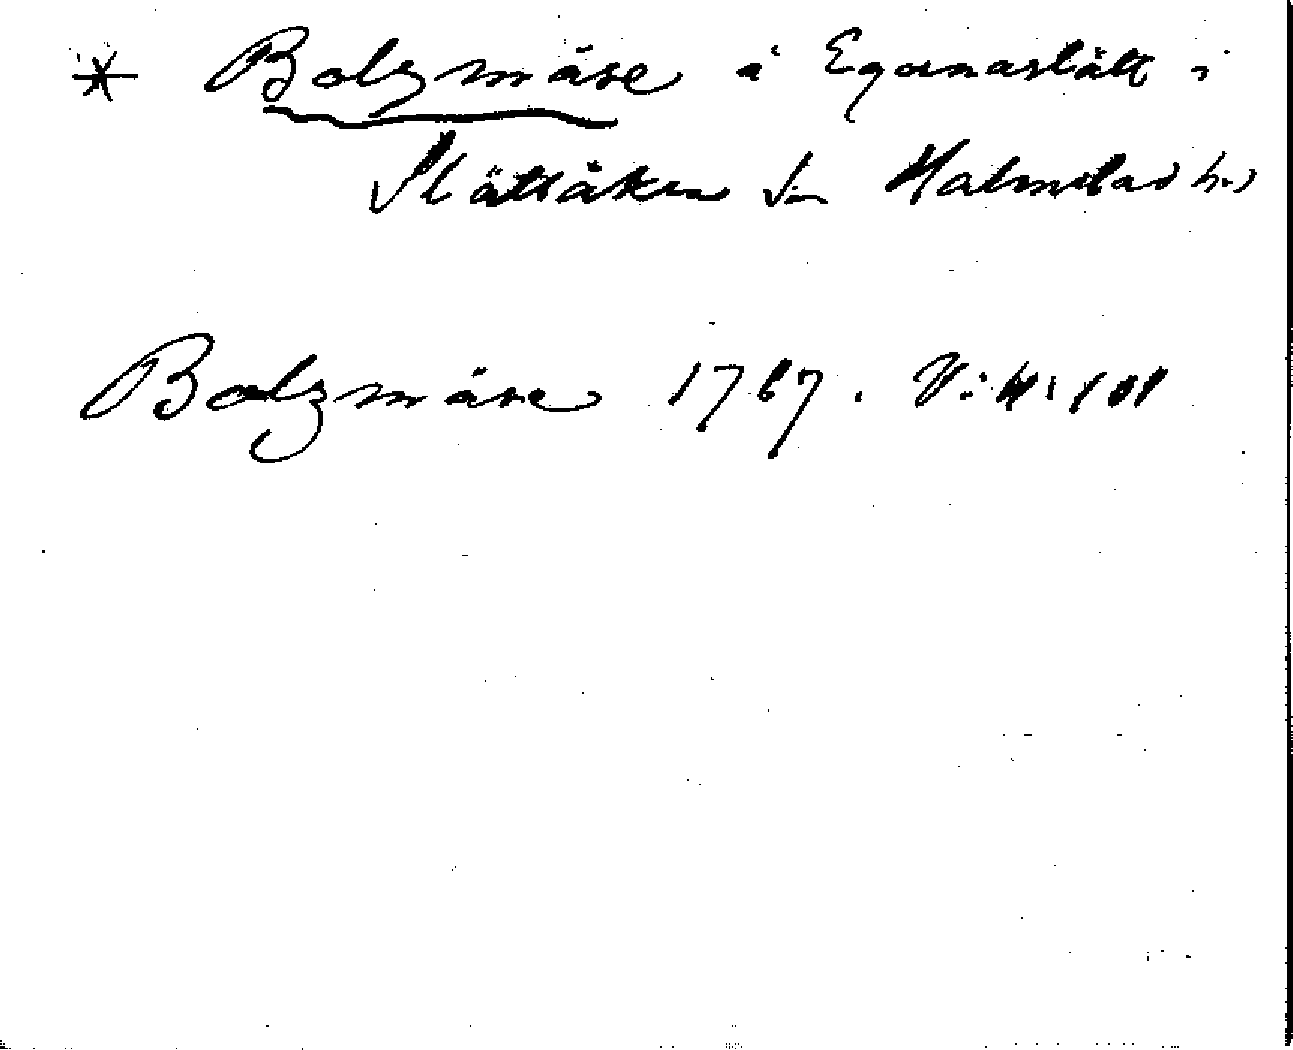 * Bolzmåse å Egornaslätt i
Slättåkra sn Halmstad h.
Bolzmåse 1767. V: 4: 101